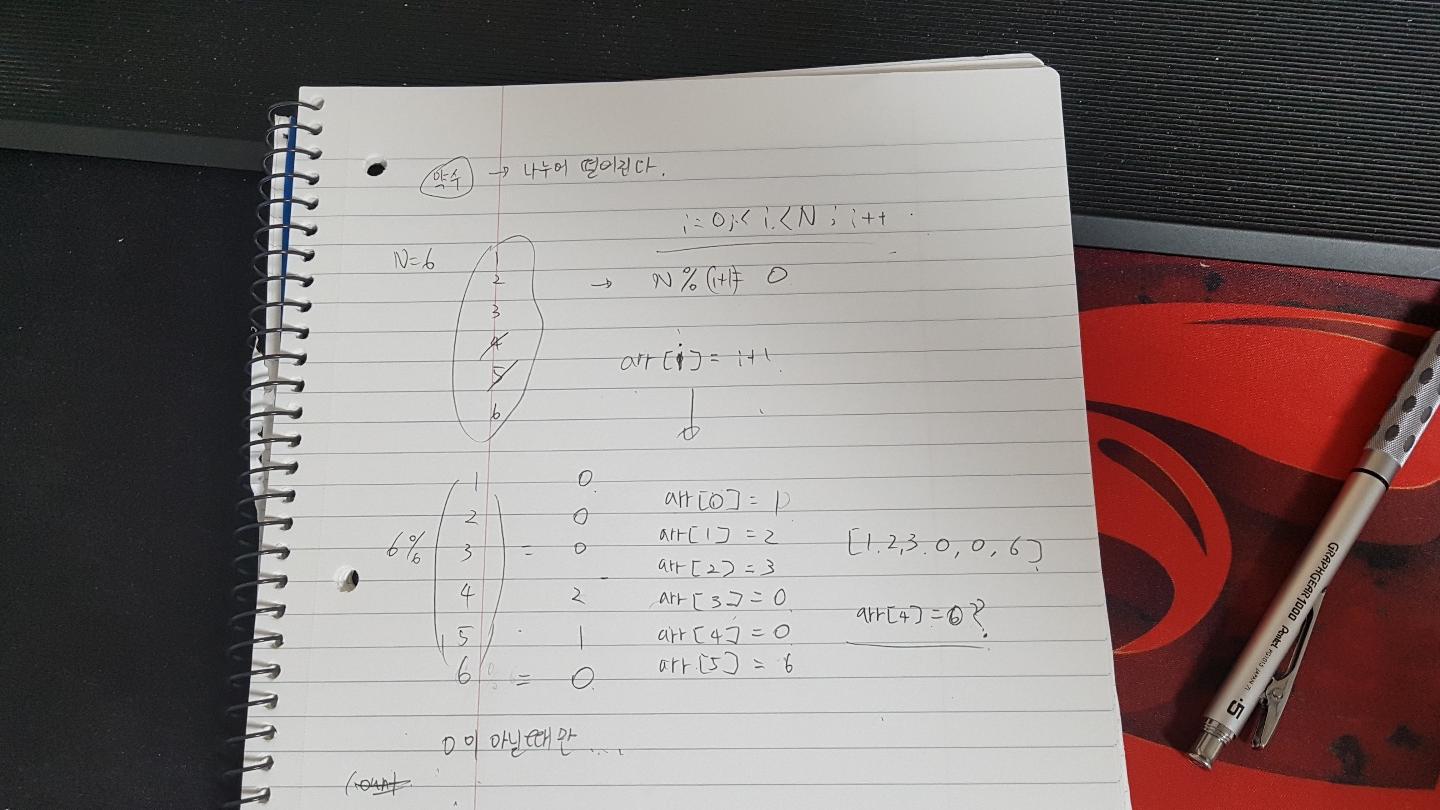 약수 → 나누어 떨어진다.
i=0;< i<N ; i++
N=6
1
2
3
4
5
6
→ N % (i+1)= 0
arr[i] = i+1
6%
1 0
2 0
3 = 0
4 2
5 1
6 = 0
arr[0] = 1
arr[1] = 2
arr[2] = 3
arr[3] = 0
arr[4] = 0
arr[5] = 6
[1.2,3.0,0,6]
arr[4] = 6?
0이 아닐때만 ....
count
GRAPHGEAR 1000 Pentel
.5